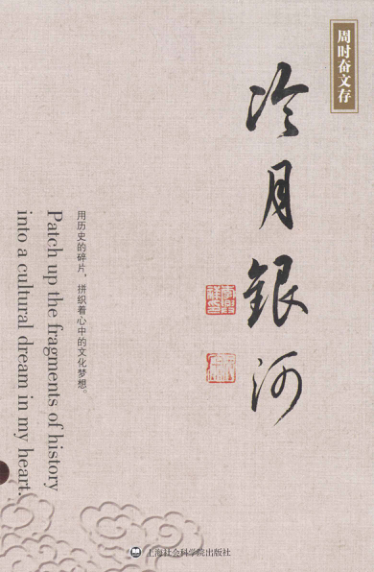 周时奋文存
冷月銀河
用历史的碎片，拼织着心中的文化梦想。
Patch up the fragments of history
into a cultural dream in my heart.
上海社会科学院出版社